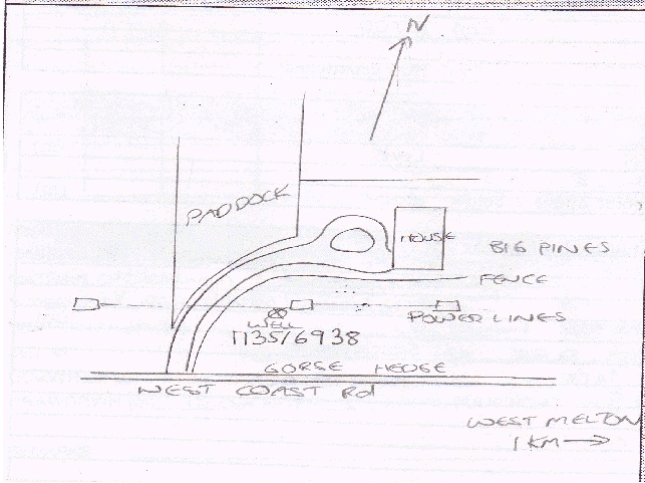 N
PADDOCK
HOUSE
BIG PINES
FENCE
POWER LINES
WELL
M35/6938
GORSE HEDGE
WEST COAST Rd
WEST MELTON
1 KM